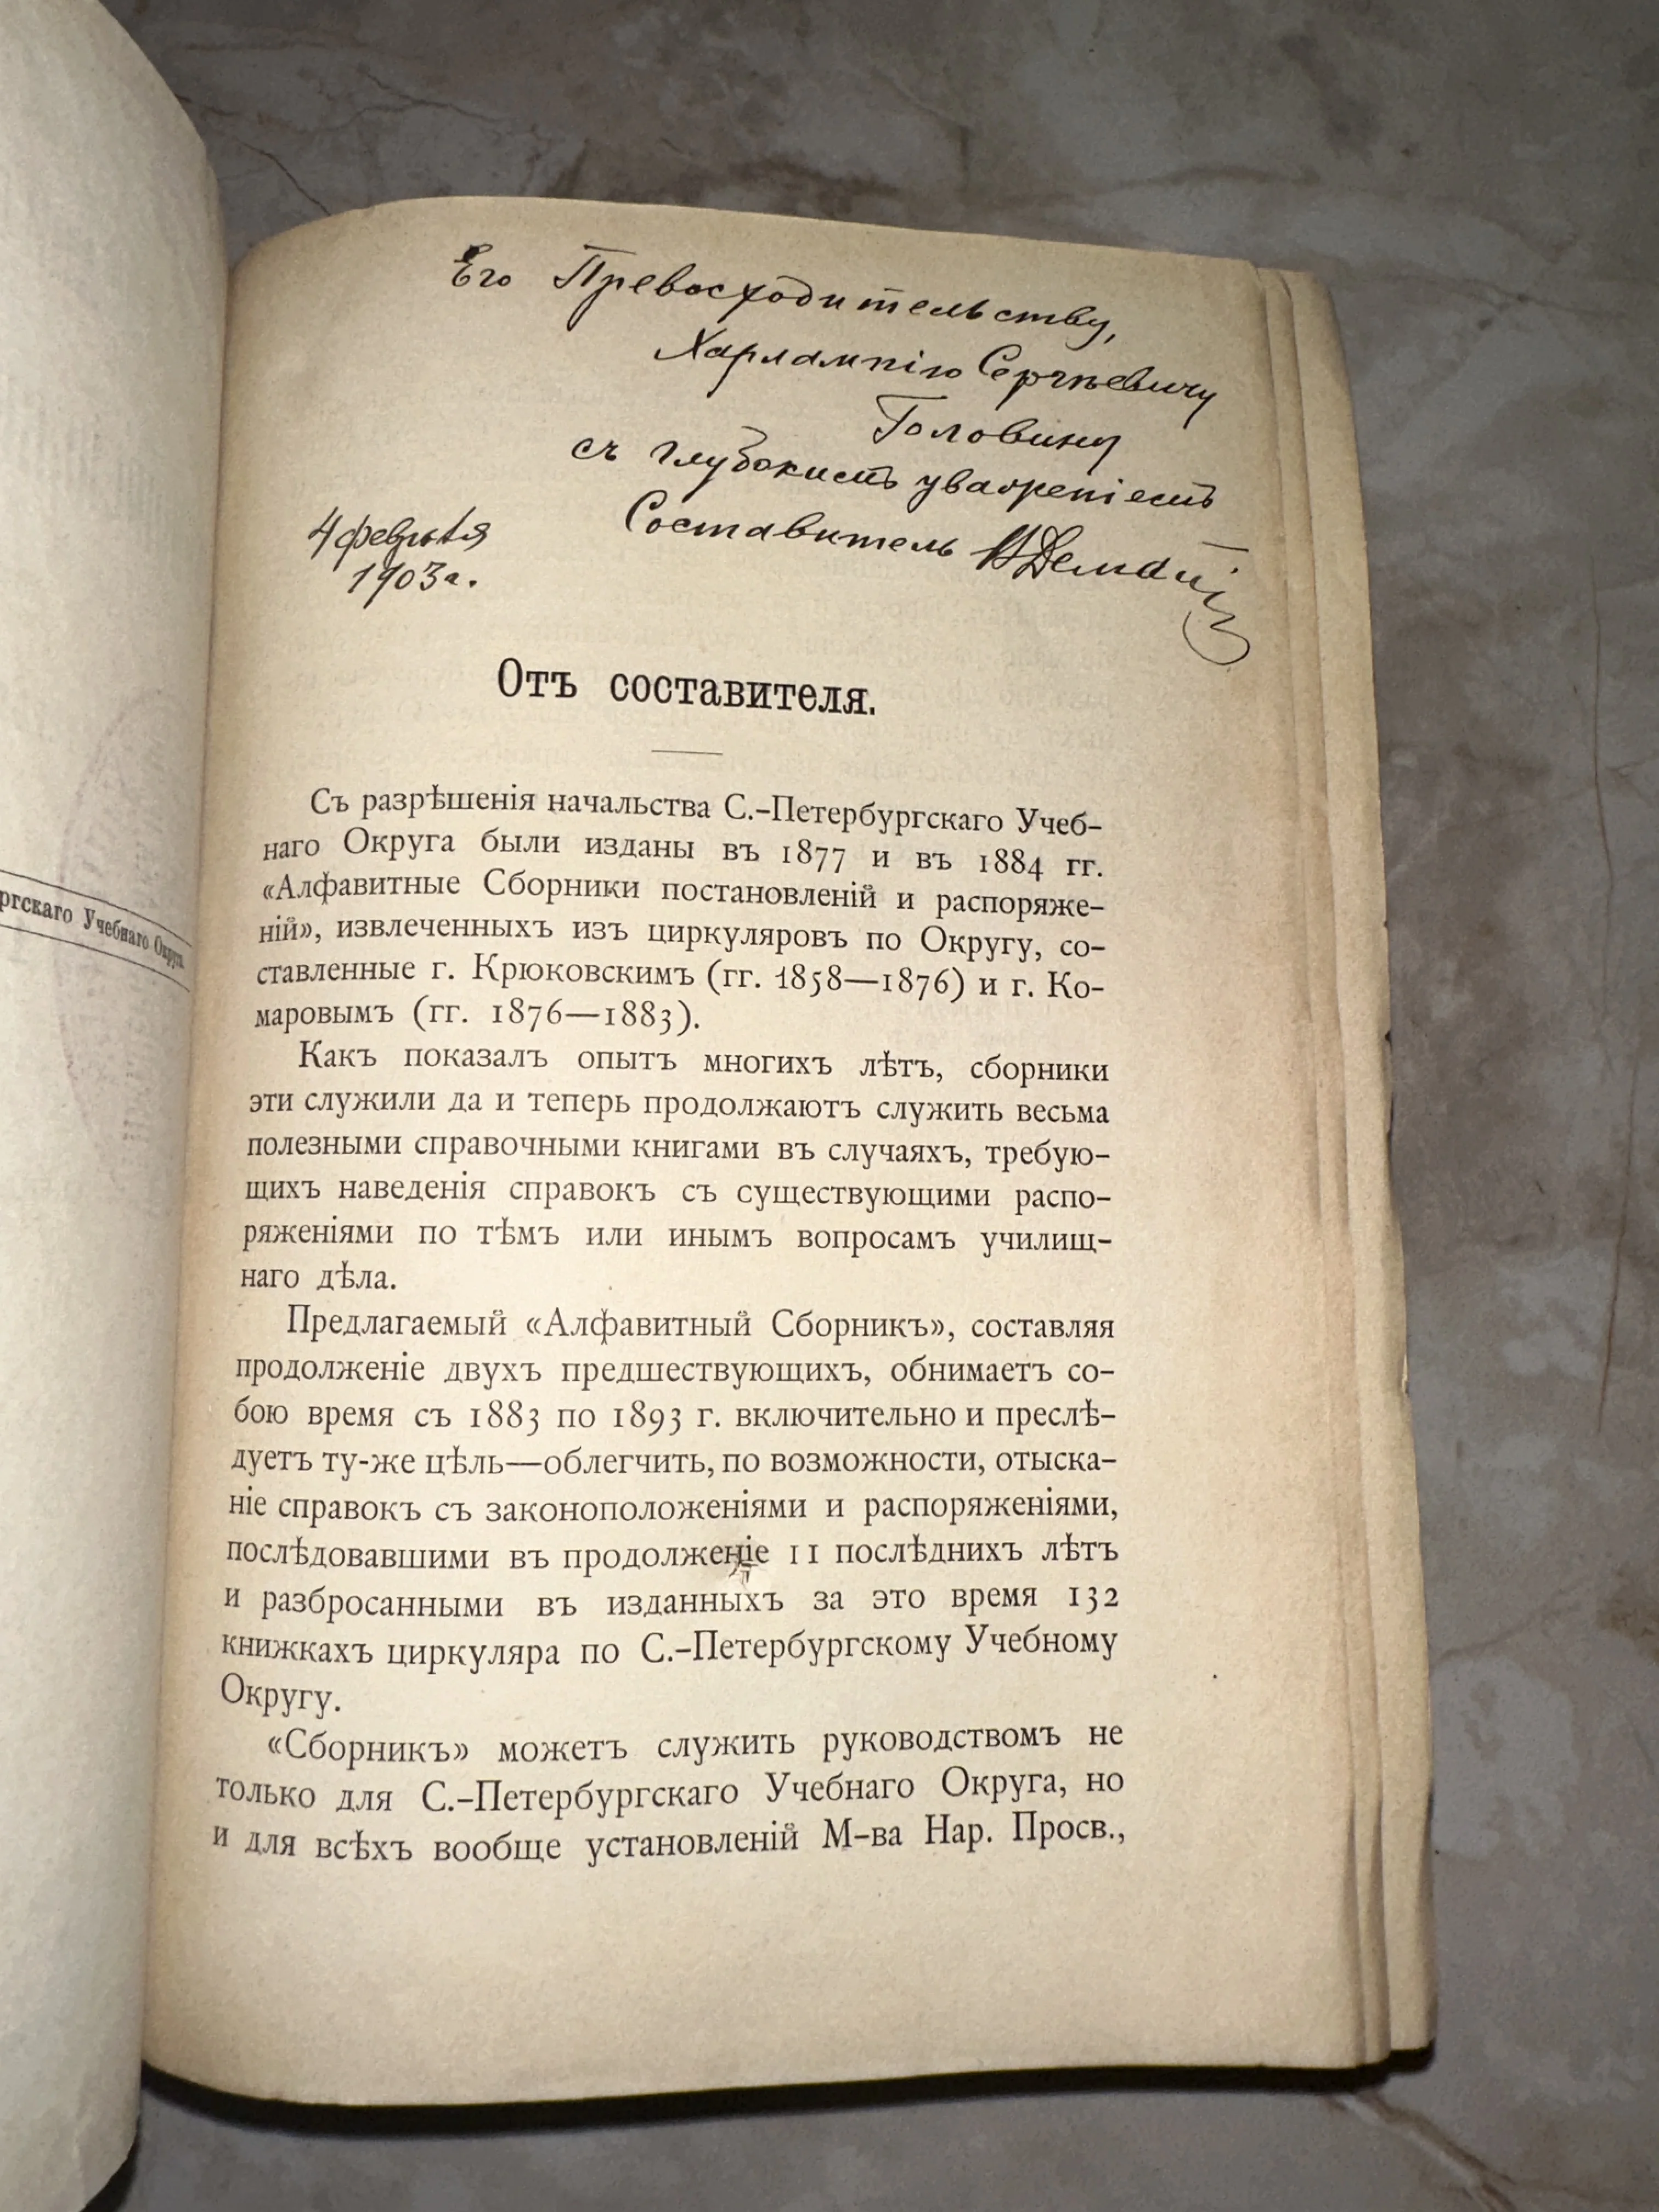 ргскаго Учебнаго Округа
Его Превосходительству,
Харлампію Сергѣевичу
Головину
съ глубокимъ уваженіемъ
Составитель
4 февраля
1903 г.
Отъ составителя.
Съ разрѣшенія начальства С.-Петербургскаго Учеб-
наго Округа были изданы въ 1877 и въ 1884 гг.
«Алфавитные Сборники постановленій и распоряже-
ній», извлеченныхъ изъ циркуляровъ по Округу, со-
ставленные г. Крюковскимъ (гг. 1858—1876) и г. Ко-
маровымъ (гг. 1876—1883).
Какъ показалъ опытъ многихъ лѣтъ, сборники
эти служили да и теперь продолжаютъ служить весьма
полезными справочными книгами въ случаяхъ, требую-
щихъ наведенія справокъ съ существующими распо-
ряженіями по тѣмъ или инымъ вопросамъ училищ-
наго дѣла.
Предлагаемый «Алфавитный Сборникъ», составляя
продолженіе двухъ предшествующихъ, обнимаетъ со-
бою время съ 1883 по 1893 г. включительно и преслѣ-
дуетъ ту-же цѣль—облегчить, по возможности, отыска-
ніе справокъ съ законоположеніями и распоряженіями,
послѣдовавшими въ продолженіе 11 послѣднихъ лѣтъ
и разбросанными въ изданныхъ за это время 132
книжкахъ циркуляра по С.-Петербургскому Учебному
Округу.
«Сборникъ» можетъ служить руководствомъ не
только для С.-Петербургскаго Учебнаго Округа, но
и для всѣхъ вообще установленій М-ва Нар. Просв.,